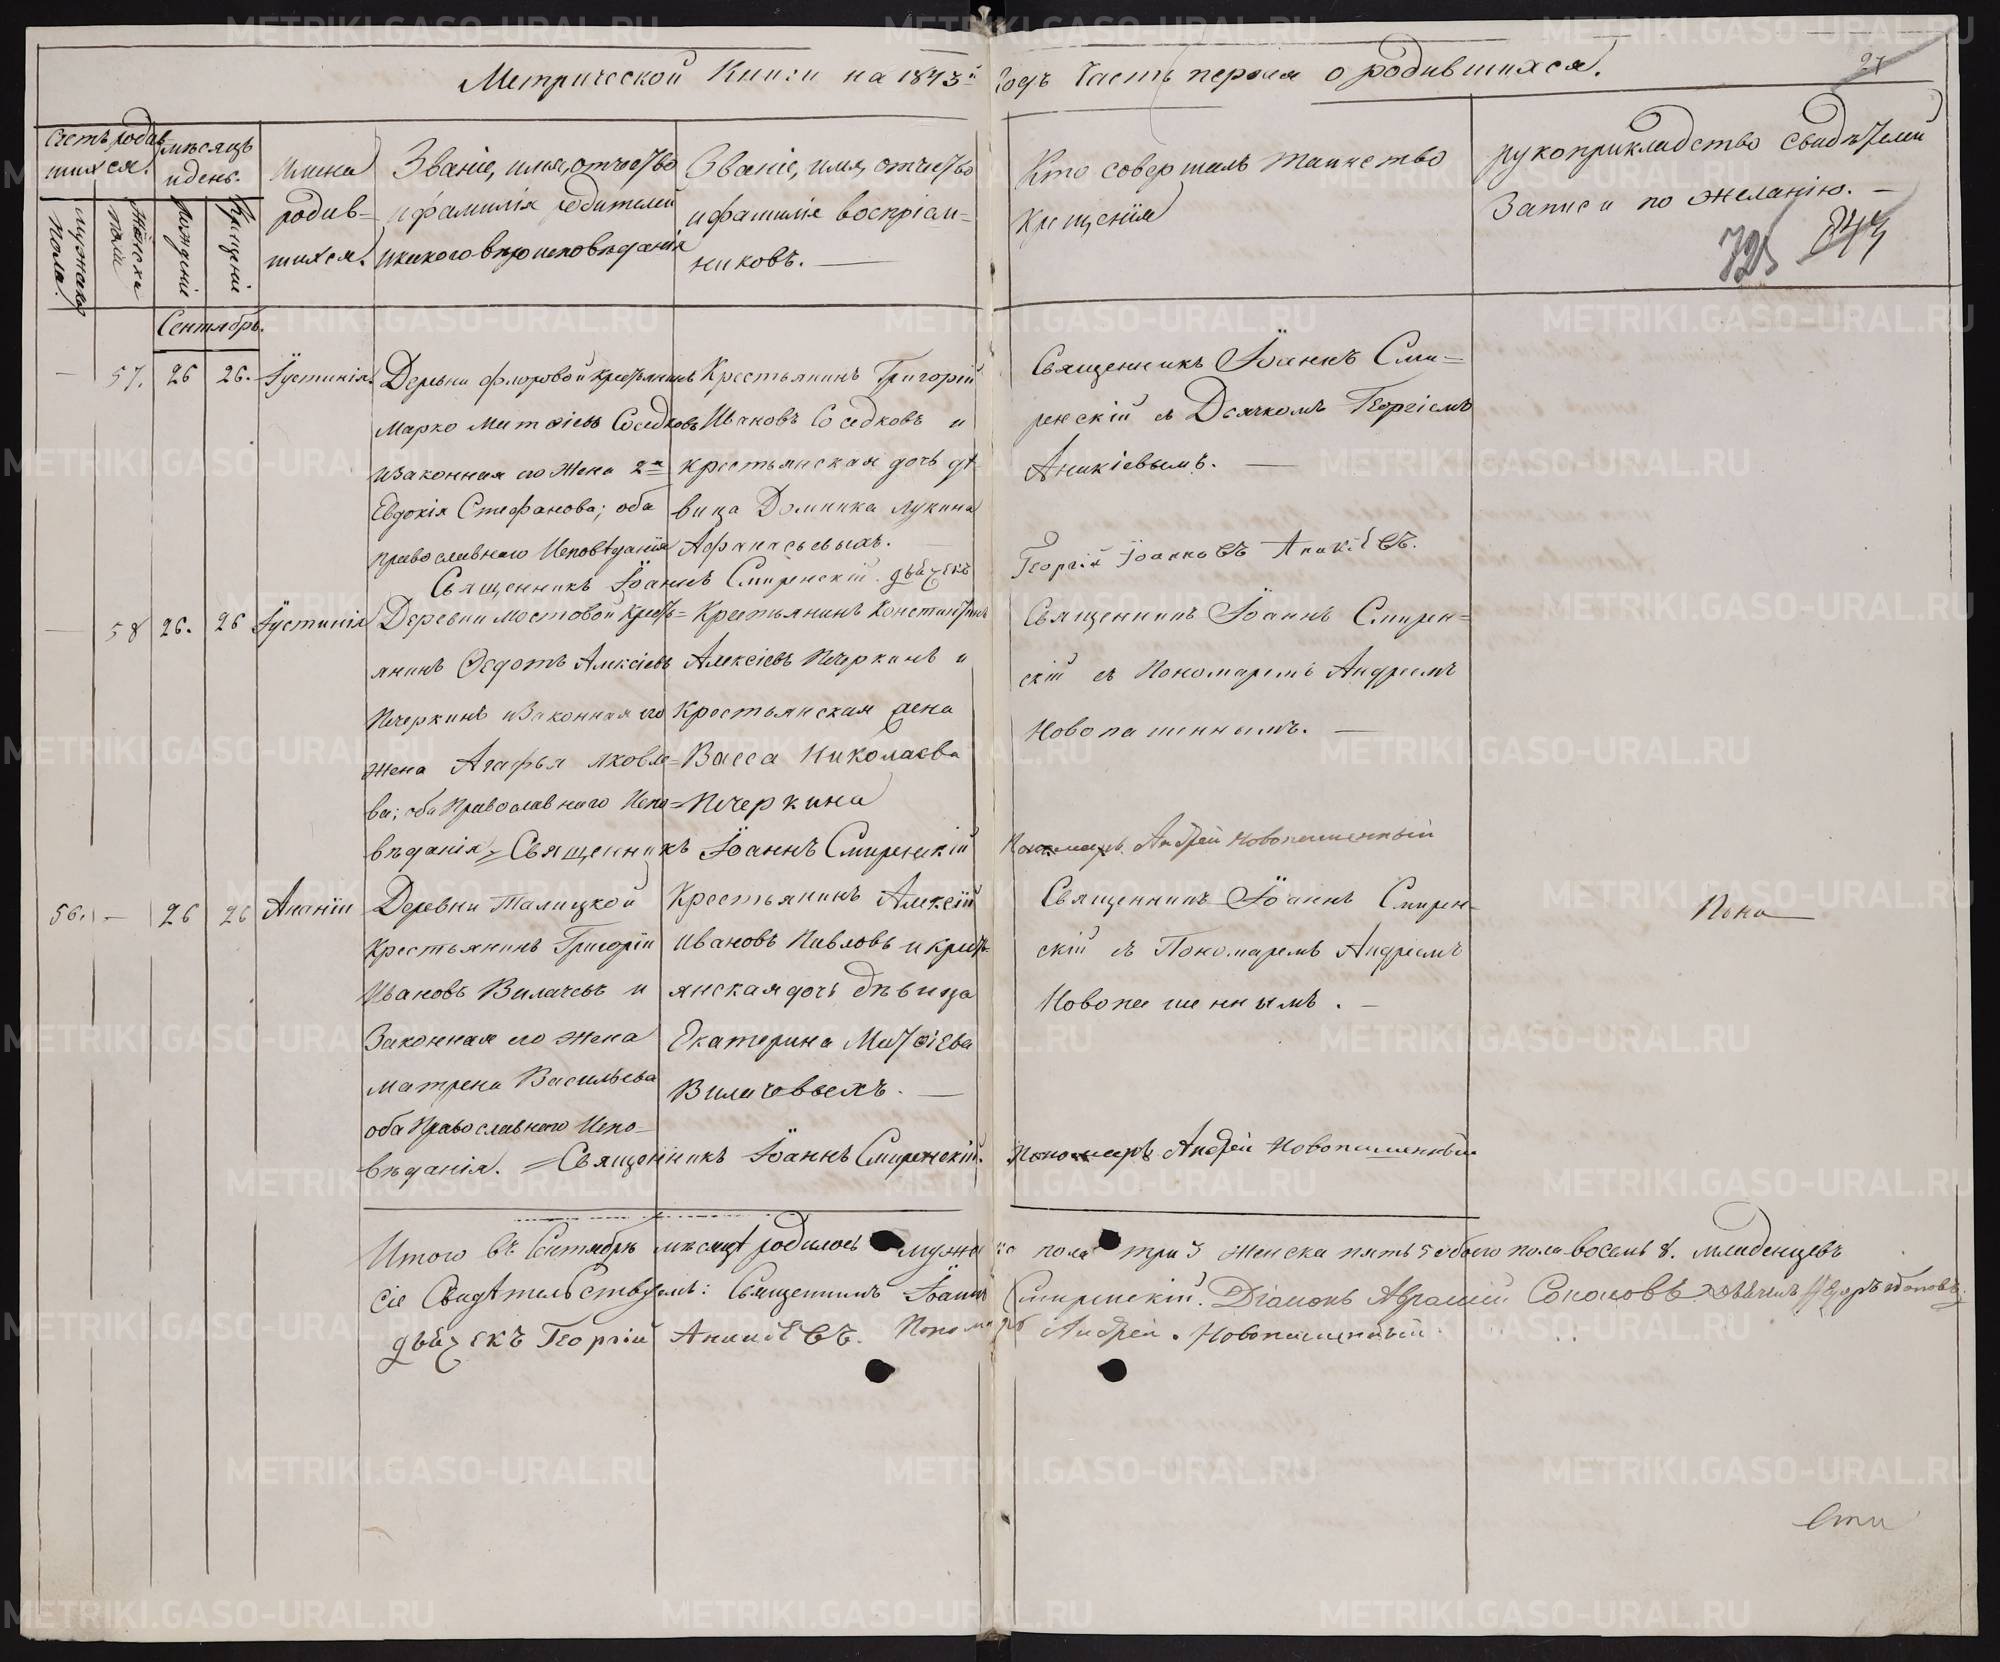 Метрической Книги на 1843й Годъ Часть первая о родившихся.
27
Счетъ родив
шихся.
мужеска
пола.
женска
пола
мѣсяцъ
и день.
Рожденіе
Крещеніе
Имена
родив=
шихся.
Званіе, имя, отчество
и фамилія родителей
и какого вѣроисповѣданія
Званіе, имя, отчество
и фамилія воспріем=
никовъ. —
Кто совершалъ таинство
Крещенія
рукоприкладство свидѣтелей
Записи по желанію. —
725
Сентябрь.
— 57. 26 26. Іустинія.
Деревни Флоровой крестьянинъ
Марко Матѳіевъ Соседковъ
и Законная его Жена 2я
Евдокія Стефанова; оба
православнаго Исповѣданія
Крестьянинъ Григорій
Ивановъ Соседковъ и
крестьянская дочь дѣ
вица Домника Лукина
Афанасьевыхъ. —
Священникъ Іоаннъ Сми=
ренскій съ Дьячкомъ Георгіемъ
Аникіевымъ. —
Священникъ Іоаннъ Смиренскій. дьячекъ
Георгій Іоанновъ Аникіевъ.
— 58 26. 26 Іустинія
Деревни Мостовой Кресть=
янинъ Ѳедотъ Алексіевъ
Печеркинъ и Законная его
жена Агафья Яковле=
ва; оба Православнаго Испо=
вѣданія.
Крестьянинъ Константинъ
Алексіевъ Печеркинъ и
Крестьянская жена
Васса Николаева
Печеркина
Священникъ Іоаннъ Смирен=
скій съ Пономаремъ Андреемъ
Новопашеннымъ. —
Священникъ Іоаннъ Смиренскій
Пономарь Андрей Новопашенный
56. — 26 26 Ананіи
Деревни Талицкой
Крестьянинъ Григорій
Ивановъ Вилачевъ и
Законная его жена
Матрена Васильева
оба Православнаго Испо-
вѣданія.
Крестьянинъ Алексій
Ивановъ Павловъ и кресть=
янская дочь дѣвица
Екатерина Матѳіева
Вилачевыхъ. —
Священникъ Іоаннъ Смирен-
скій съ Пономаремъ Андреемъ
Новопашеннымъ. —
Священникъ Іоаннъ Смиренскій.
Пономарь Андрей Новопашенный
Итого въ Сентябрѣ мѣсяцѣ родилось мужеска пола три 3 женска пять 5 обоего пола восемь 8. младенцевъ
Сіе Свидѣтельствуемъ: Священникъ Іоаннъ Смиренскій. Діаконъ Авраамій Соколовъ
дьячекъ Георгій Аникіевъ. Пономарь Андрей Новопашенный
METRIKI.GASO-URAL.RU